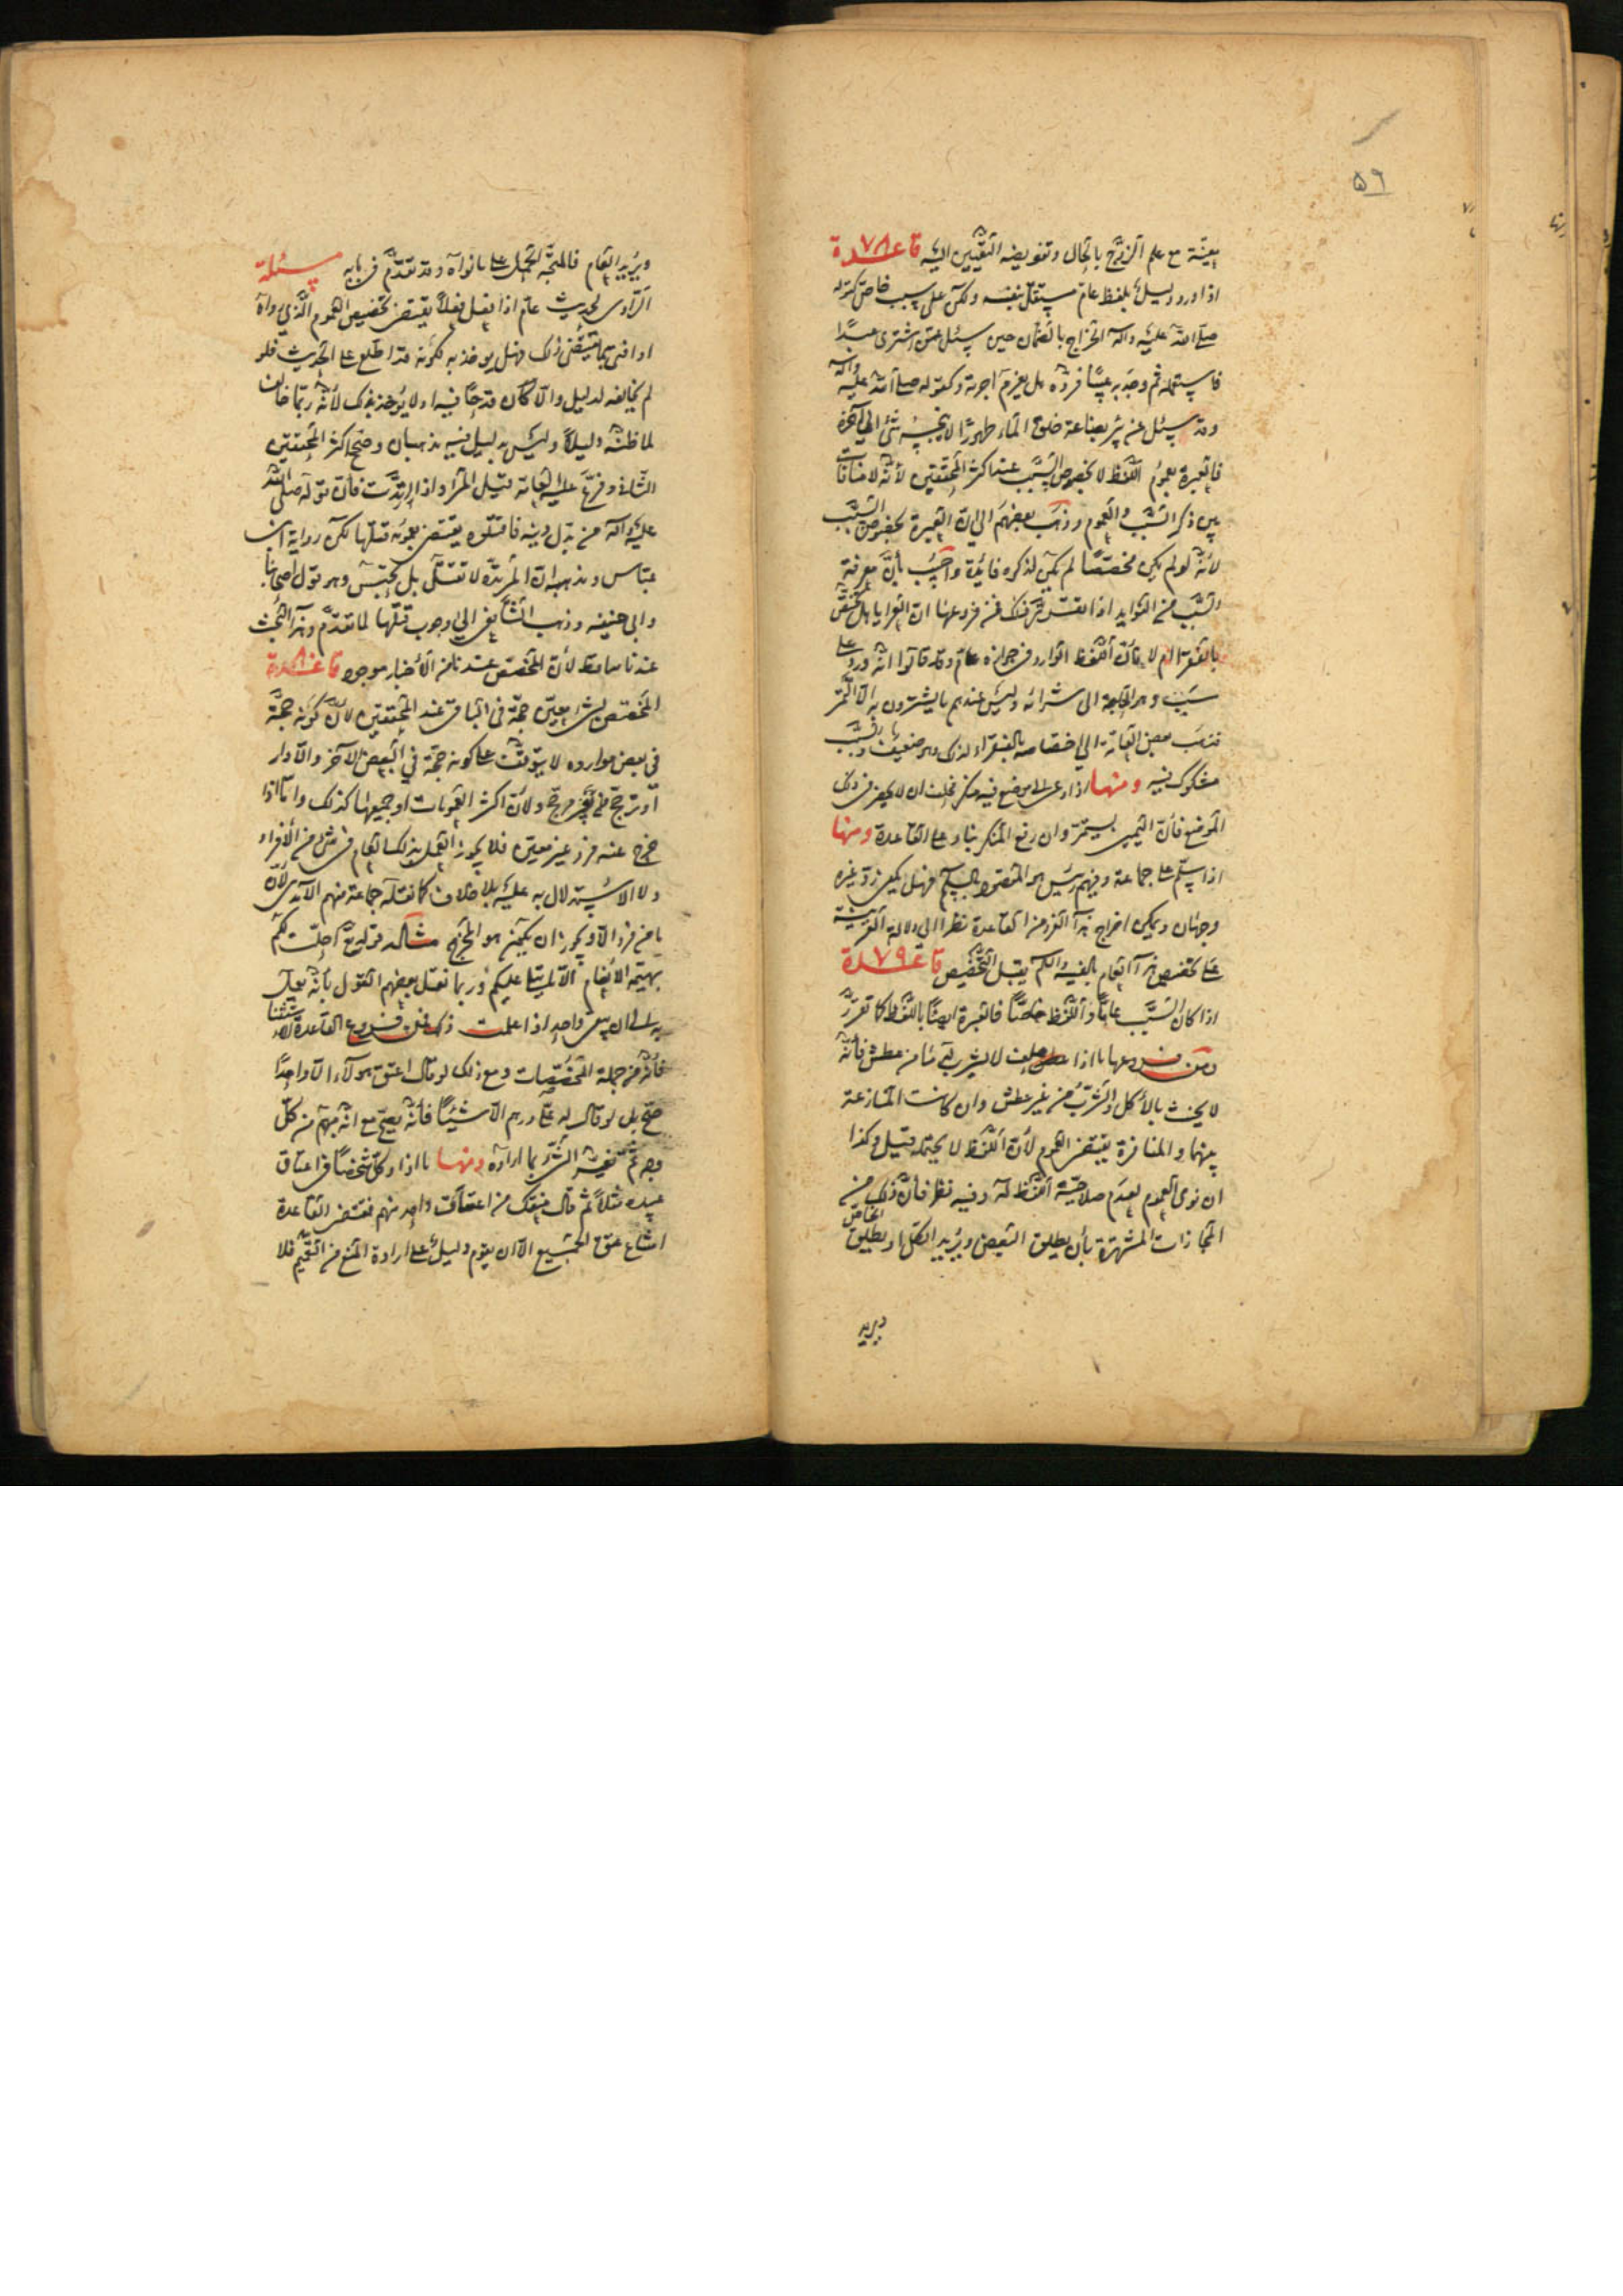 ۵۹
بعينه مع علم الزوج بالحال وتفويضه التعيين اليه قاعدة ٧٨
اذا ورد دليل بلفظ عام مستقل بنفسه ولكن على سبب خاص كقوله
صلى الله عليه وآله الخراج بالضمان حين سئل عمن اشترى عبدًا
فاستعمله ثم وجد به عيبًا فرده هل يغرم اجرته وكقوله صلى الله عليه وآله
وقد سئل عن بئر بضاعة خلق الماء طهورًا لا ينجسه شئ الى آخره
فالعبرة بعموم اللفظ لا بخصوص السبب عند اكثر المحققين لأنه لا منافات
بين ذكر السبب والعموم وذهب بعضهم الى ان العبرة بخصوص السبب
لأنه لو لم يكن مخصصًا لم يكن لذكره فائدة واجيب بأن معرفة
السبب من الفوايد اذا تقرر ذلك فمن فروعها ان العرايا هل تختص
بالفقراء ام لا فان اللفظ الوارد في جوازه عام وقد قالوا انه ورد على
سبب وهو الحاجة الى شرائه وليس عندهم ما يشترون به الا التمر
فذهب بعض العامة الى اختصاصه بالفقراء لذلك وهو ضعيف والسبب
مشكوك فيه ومنها اذا دعى الى موضع فيه منكر فحلف ان لا يحضر في ذلك
الموضع فان اليمين يستمر وان رفع المنكر بناء على القاعدة ومنها
اذا سلم على جماعة وفيهم رئيس هو المقصود بالسلم فهل يكفى رد غيره
وجهان ويمكن اخراج هذا الفرد من القاعدة نظرا الى دلالة القرينة
على تخصيص هذا العام بالنية والحكم يقبل التخصيص قاعدة ٧٩
اذا كان السبب عامًا واللفظ خاصًا فالعبرة ايضًا باللفظ كما تقرر
ومن فروعها ما اذا حلف لا يشرب له ماء من عطش فانه
لا يحنث بالأكل والشرب من غير عطش وان كانت المنازعة
بينهما والمنافرة يقتضى العموم لأن اللفظ لا يحتمله قيل وكذا
ان نوى العموم لعدم صلاحية اللفظ له وفيه نظر فان ذلك من
المجازات المشهورة بأن يطلق البعض ويريد الكل او يطلق الخاص
ويريد
ويريد العام فالمتجه الحمل على ما نواه وقد تقدم في بابه مسئلة
الراوى لحديث عام اذا فعل فعلاً يقتضى تخصيص العموم الذي رواه
او افتى بما يقتضى ذلك فهل يوخذ به لكونه قد اطلع على الحديث فلو
لم يخالفه لدليل والا لكان قدحًا فيه او لا يؤخذ بذلك لأنه ربما خالف
لما ظنه دليلاً وليس بدليل فيه مذهبان وصحح اكثر المحققين
الثانى وفرع عليه العامة قتل المرأة اذا ارتدت فان قوله صلى الله
عليه وآله من بدل دينه فاقتلوه يقتضى بعمومه قتلها لكن رواية ابن
عباس ومذهبه ان المرتدة لا تقتل بل تحبس وهو قول اصحابنا
وابى حنيفه وذهب الشافعى الى وجوب قتلها لما تقدم وهذا البحث
عندنا ساقط لأن المخصص عندنا من الأخبار موجود قاعدة ٨٠
المخصص بشئ معين حجة في الباقى عند المحققين لأن كونه حجة
في بعض موارده لا يتوقف على كونه حجة في البعض الآخر والا دار
او ترجح من غير مرجح ولأن اكثر العمومات او جميعها كذلك واما اذا
خرج عنه فرد غير معين فلا يجوز العمل بذلك العام في شئ من الأفراد
ولا الاستدلال به عليه بلا خلاف كما نقله جماعة منهم الآمدى لأنه
ما من فرد الا ويجوز ان يكون هو المخرج مثاله قوله تع احلت لكم
بهيمة الأنعام الا ما يتلى عليكم وربما نقل بعضهم القول بأنه يعمل
به الى ان يبقى واحد اذا علمت ذلك فمن فروع القاعدة الاستثناء
فانه من جملة المخصصات ومع ذلك لو قال اعتق هولآء الا واحدًا
صح بل لو قال له على درهم الا شيئًا فأنه يصح مع انه مبهم من كل
وجه ثم يفسر الشئ بما اراده ومنها ما اذا وكل شخصًا في اعتاق
عبيده مثلاً ثم قال منعتك من اعتقاق واحد منهم فمقتضى القاعدة
امتناع عتق الجميع الا ان يقوم دليل على ارادة المنع من التعميم فلا